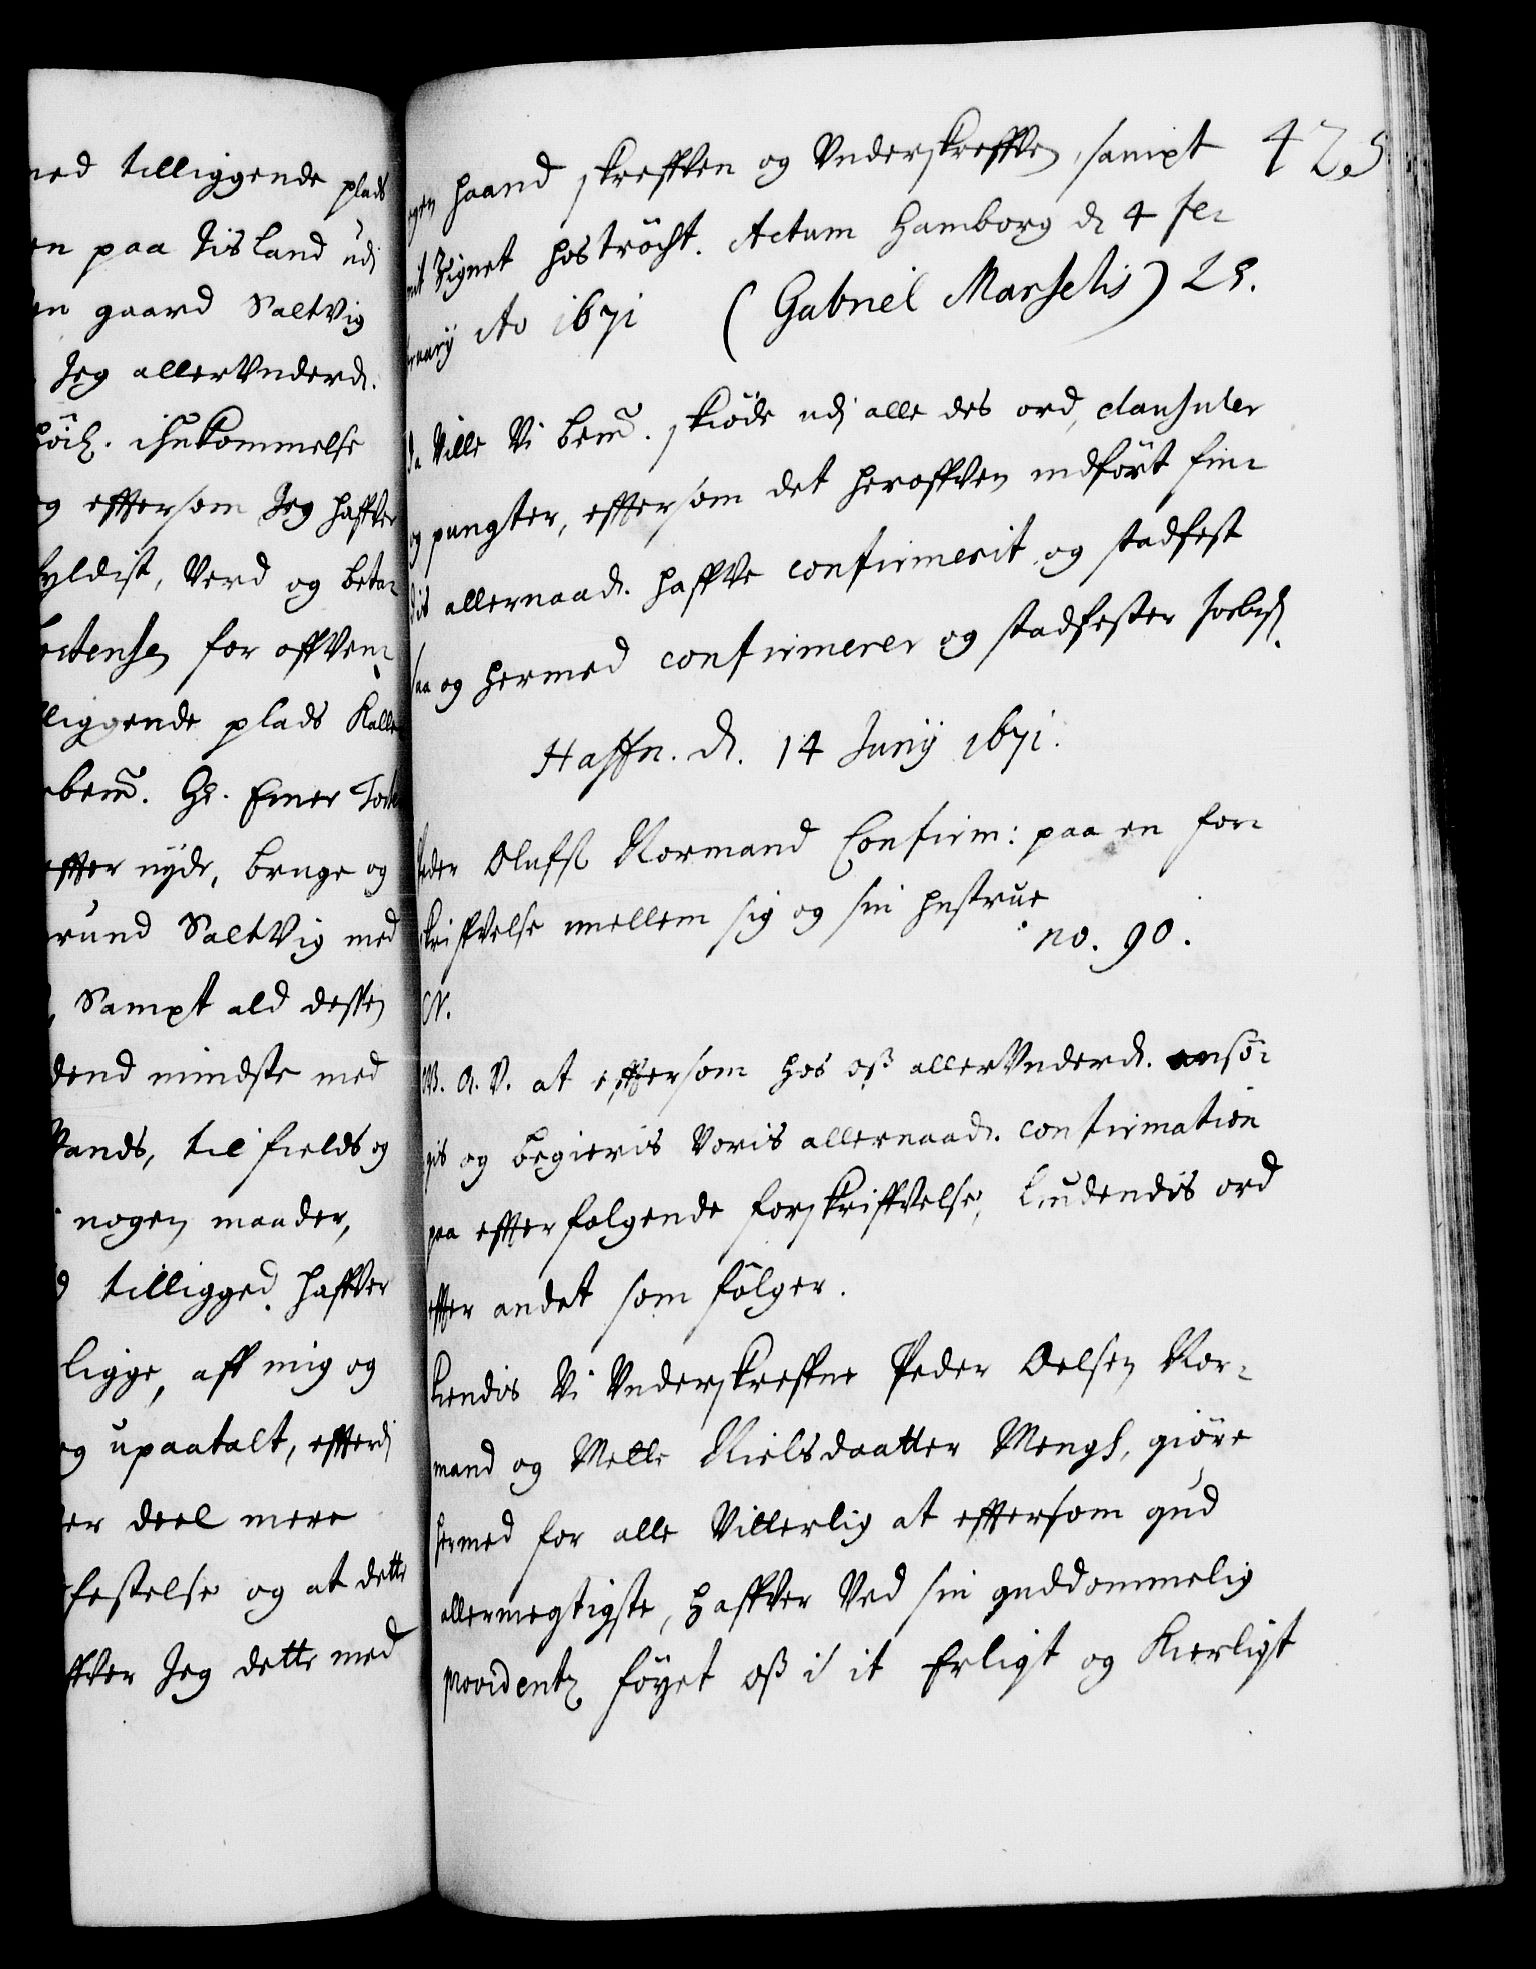 ned tilliggende plads
en paa Tisland udj
en gaard Saltvig
Jeg allerVnderd.
höil. ihukommelse
g effterson Jeg haffver
yldist, Verd og beta-
for offven-
liggende plads Kalle
bemt. Hr. Emer
effter nyde, bruge og
rund SaltVig med
, Sampt ald dessen
dend mindste med
Vands, til fields og
nogen maader,
tilligged. haffver
ligge, aff mig og
og upaatalt, efferdj
er deel mere
festelse og at dette
ffver Jeg dette med
425
egen haand skreffven og Vnderskreffven, sampt
mit Signet hoströcht. Actum Hamborg d. 4 Fe-
bruarij Ao 1671 (Gabriel Marselis) LS.
da Ville Vi bemt. skiöde udj alle des ord, clausuler
og pungter, effterson det heroffven indfört fin-
dis allernaad. haffve confirmerit og stadfest
saa og hermed confirmerer og stadfester forbydj.
Haffn. d. 14 Junij 1671.
Peder Olufsz Normand Confirm: paa en for-
skriffvelse imellem sig og sin hustrue
no. 90.
CV.
W. A. V. at effterson hos osz allerVnderd. ansö-
gis og begieris Voris allernaad. confirmation
paa effterfolgende forskriffvelse, liudendis ord
effter andet som fölger.
Kiendis Vi Vnderskreffne Peder Oelsen Nor-
mand og Mette Nielsdaatter Mengh, giöre
hermed for alle Vitterlig at effterson gud
allermegtigste, haffver Ved sin guddommelig
providentz föyet osz i it Erligt og Kierligt